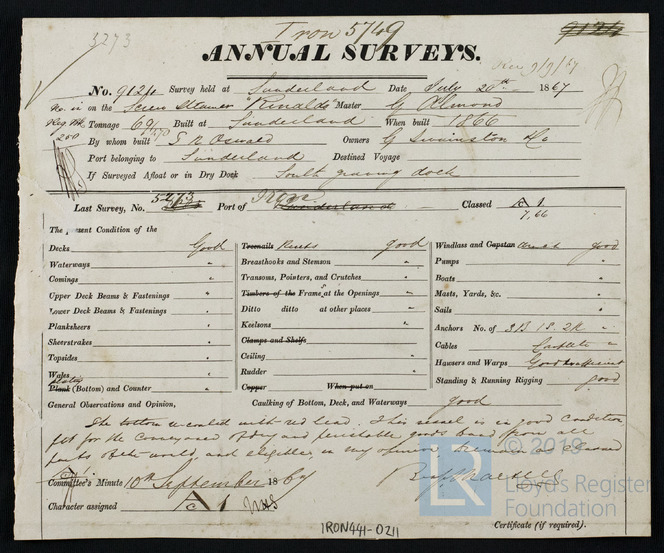 Iron 5749
3273
9124
ANNUAL SURVEYS.
Rec 9/9/67
No. 9124 Survey held at Sunderland Date July 20th 1867
No. in on the Screw Steamer "Rinaldo" Master G Almond
Reg Bk Tonnage 69 Built at Sunderland When built 1866
200 By whom built T R Oswald Owners G Swainston & Co
Port belonging to Sunderland Destined Voyage
If Surveyed Afloat or in Dry Dock South graving dock
Last Survey, No. 5273 Port of Sunderland Classed A 1
7,66
The present Condition of the
Decks Good
Waterways "
Comings "
Upper Deck Beams & Fastenings "
Lower Deck Beams & Fastenings "
Planksheers "
Sheerstrakes "
Topsides "
Wales "
Plank (Bottom) and Counter "
Treenails Rivets good
Breasthooks and Stemson "
Transoms, Pointers, and Crutches "
Timbers of the Frames at the Openings "
Ditto ditto at other places "
Keelsons "
Clamps and Shelfs
Ceiling "
Rudder "
Copper When put on
Windlass and Capstan good
Pumps "
Boats "
Masts, Yards, &c. "
Sails "
Anchors No. of 3B 1S 2K "
Cables "
Hawsers and Warps Good & sufficient
Standing & Running Rigging good
General Observations and Opinion, Caulking of Bottom, Deck, and Waterways good
The bottom coated with red lead. This vessel is in good condition
fit for the conveyance of dry and perishable goods to and from all
parts of the world, and eligible, in my opinion, to remain as classed
Committee's Minute 10th September 1867
Character assigned A 1
Certificate (if required).
IRON441-0211
© 2019
Lloyd's Register
Foundation